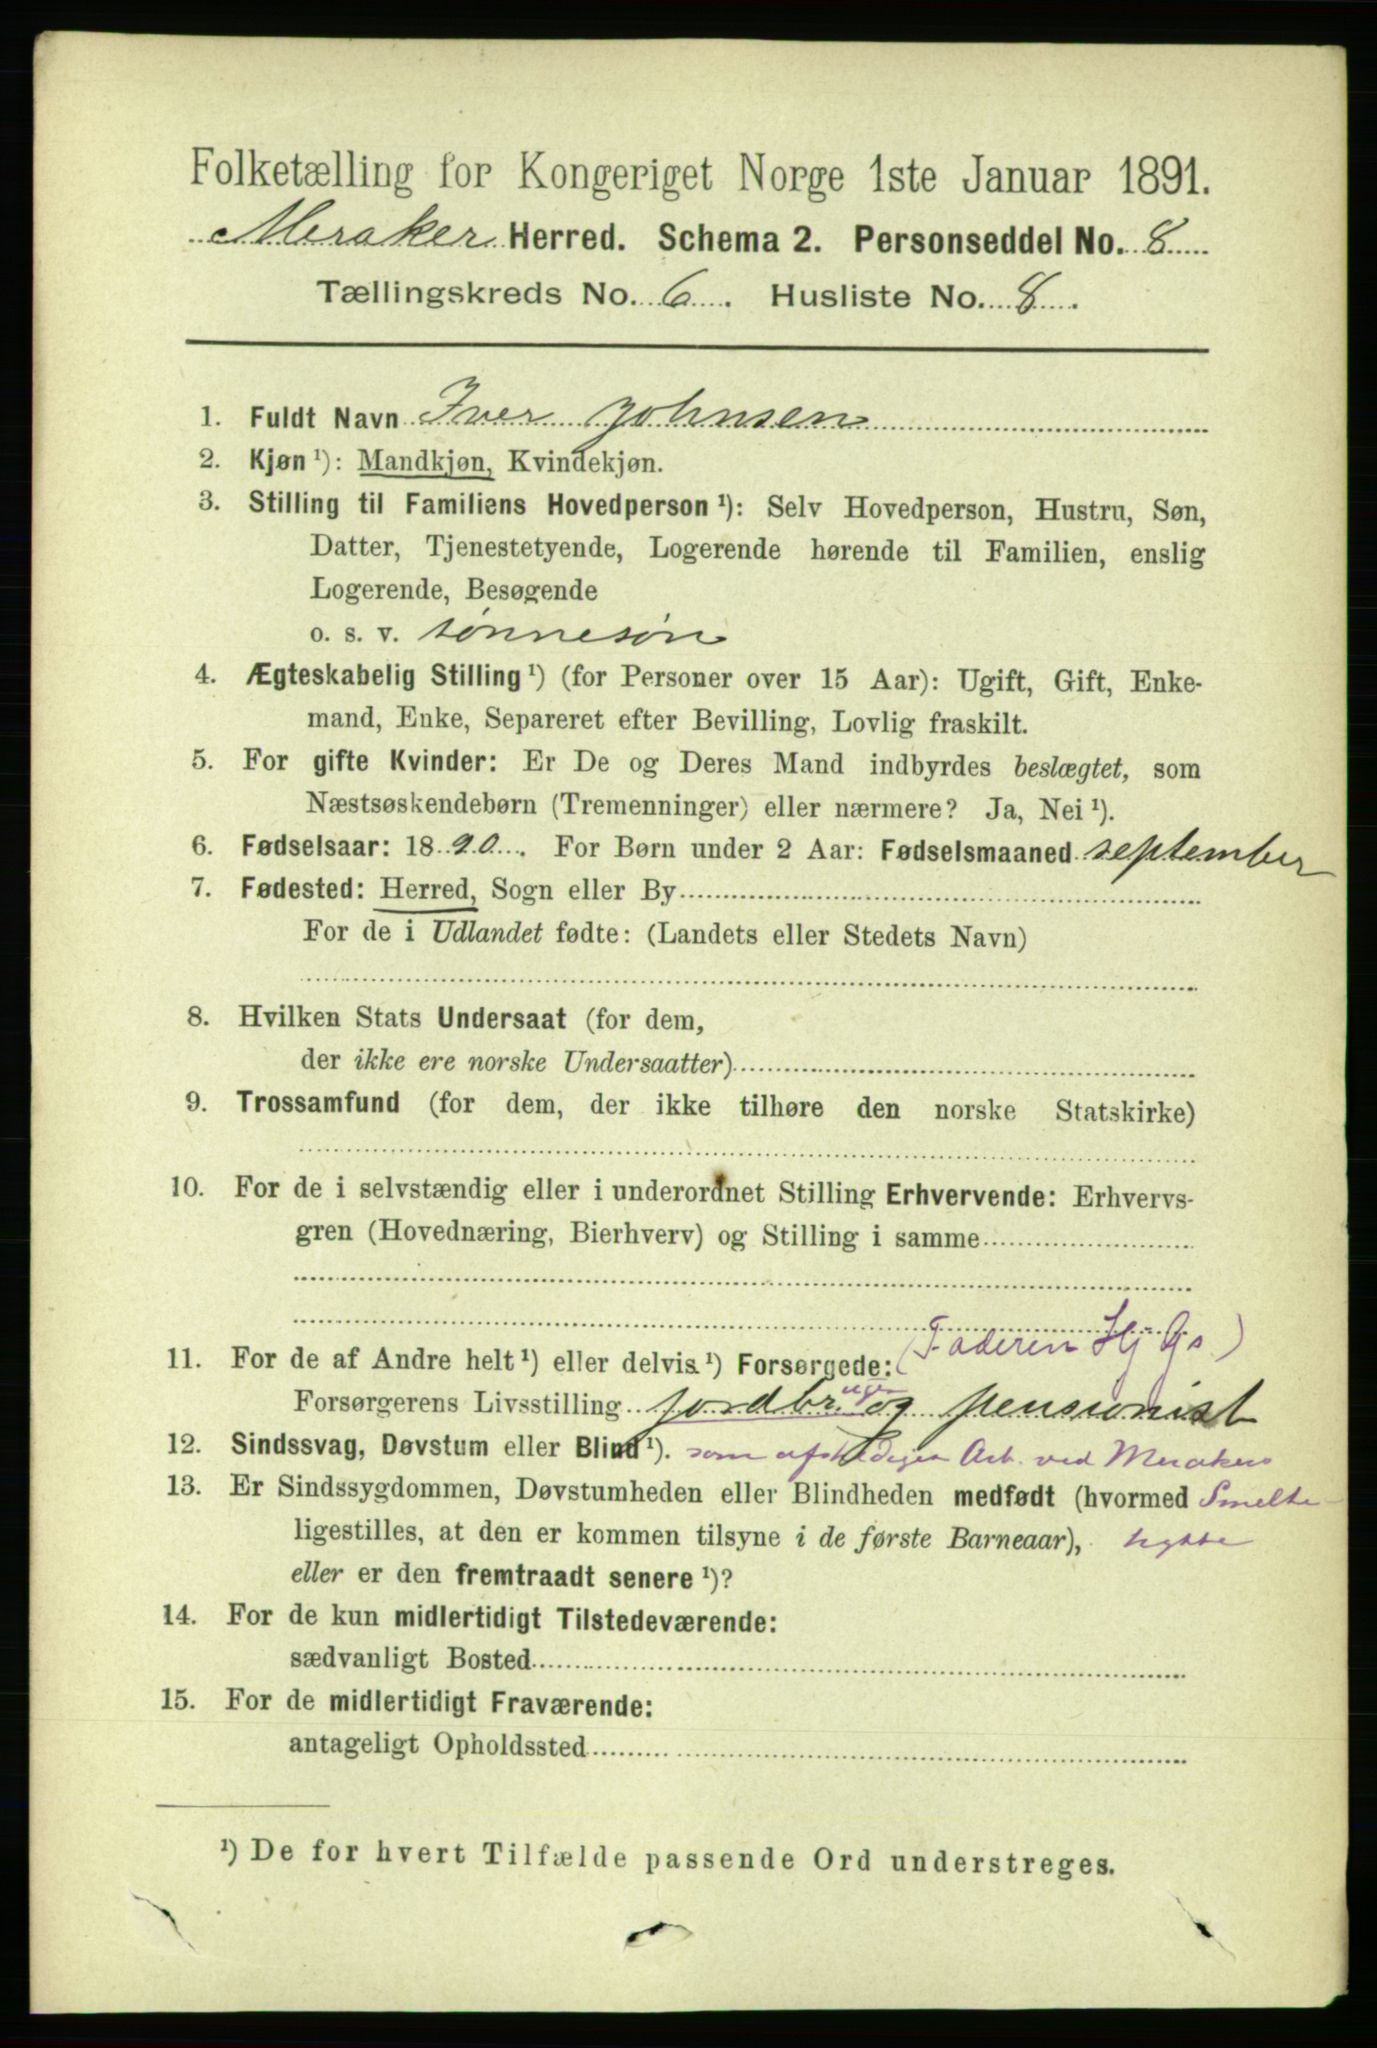 Folketælling for Kongeriget Norge 1ste Januar 1891.
Meraker Herred. Schema 2. Personseddel No. 8
Tællingskreds No. 6. Husliste No. 8.
1. Fuldt Navn Iver Johnsen
2. Kjøn ¹): Mandkjøn, Kvindekjøn.
3. Stilling til Familiens Hovedperson ¹): Selv Hovedperson, Hustru, Søn,
Datter, Tjenestetyende, Logerende hørende til Familien, enslig
Logerende, Besøgende
o. s. v. sønnesøn
4. Ægteskabelig Stilling ¹) (for Personer over 15 Aar): Ugift, Gift, Enke-
mand, Enke, Separeret efter Bevilling, Lovlig fraskilt.
5. For gifte Kvinder: Er De og Deres Mand indbyrdes beslægtet, som
Næstsøskendebørn (Tremenninger) eller nærmere? Ja, Nei ¹).
6. Fødselsaar: 1890. For Børn under 2 Aar: Fødselsmaaned september
7. Fødested: Herred, Sogn eller By
For de i Udlandet fødte: (Landets eller Stedets Navn)
8. Hvilken Stats Undersaat (for dem,
der ikke ere norske Undersaatter)
9. Trossamfund (for dem, der ikke tilhøre den norske Statskirke)
10. For de i selvstændig eller i underordnet Stilling Erhvervende: Erhvervs-
gren (Hovednæring, Bierhverv) og Stilling i samme
11. For de af Andre helt ¹) eller delvis ¹) Forsørgede: (Faderen
Forsørgerens Livsstilling jordbruger og pensionist
12. Sindssvag, Døvstum eller Blind ¹). som afskediget Arb. ved Merakers
13. Er Sindssygdommen, Døvstumheden eller Blindheden medfødt (hvormed Smelte-
ligestilles, at den er kommen tilsyne i de første Barneaar), hytte
eller er den fremtraadt senere ¹)?
14. For de kun midlertidigt Tilstedeværende:
sædvanligt Bosted
15. For de midlertidigt Fraværende:
antageligt Opholdssted
¹) De for hvert Tilfælde passende Ord understreges.